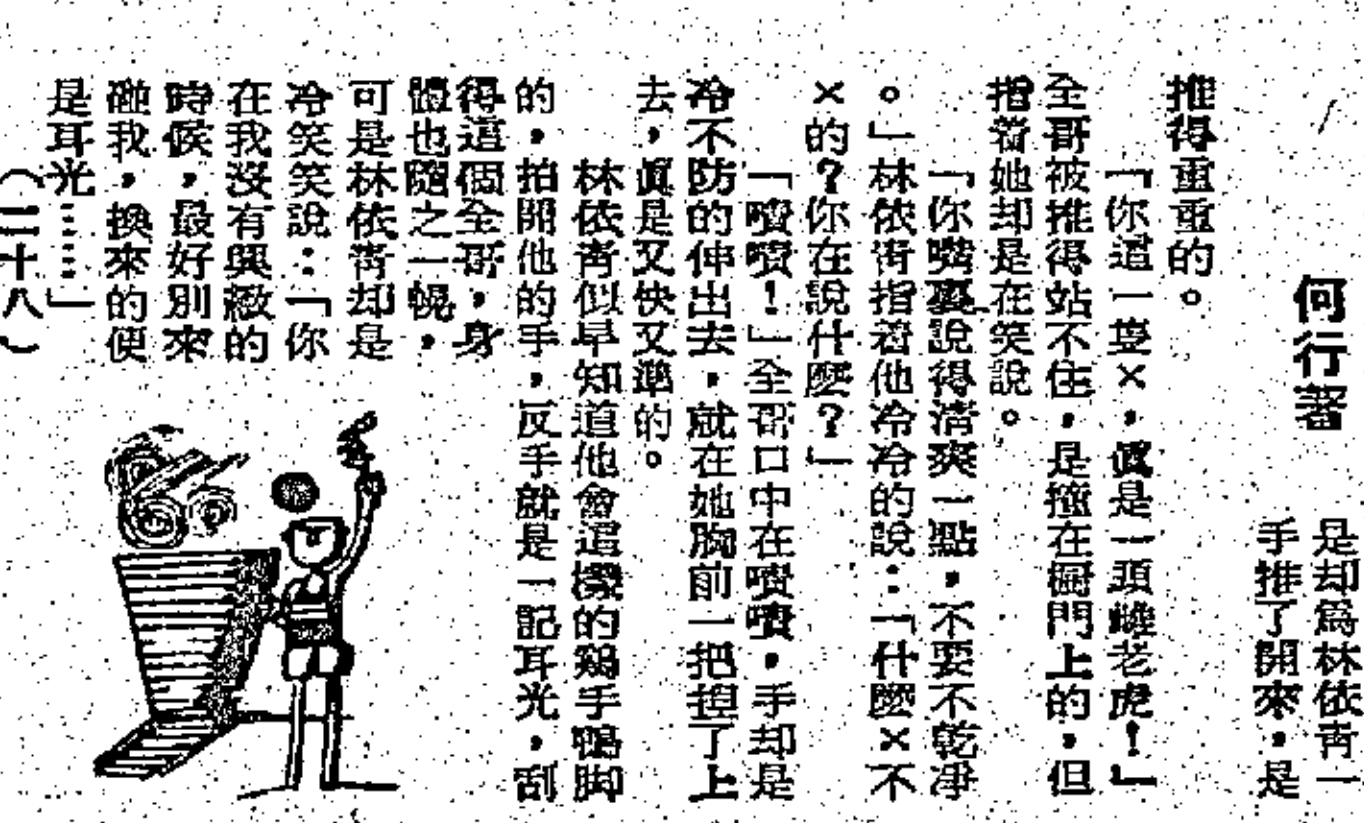 何行著
是却爲林依青一
手推了開來，是
推得重重的。
「你這一隻×，眞是一頭雌老虎！」
全哥被推得站不住，是撞在櫥門上的，但
指着她却是在笑說。
「你嘴裏說得清爽一點，不要不乾凈
。」林依青指着他冷冷的說：「什麼×不
×的？你在說什麼？」
「嘖嘖！」全哥口中在嘖嘖，手却是
冷不防的伸出去，就在她胸前一把揑了上
去，眞是又快又準的。
林依青似早知道他會這樣的鷄手鴨脚
的，拍開他的手，反手就是一記耳光，刮
得這個全哥，身
體也隨之一幌，
可是林依青却是
冷笑笑說：「你
在我沒有興緻的
時候，最好別來
碰我，換來的便
是耳光……」
（二十八）